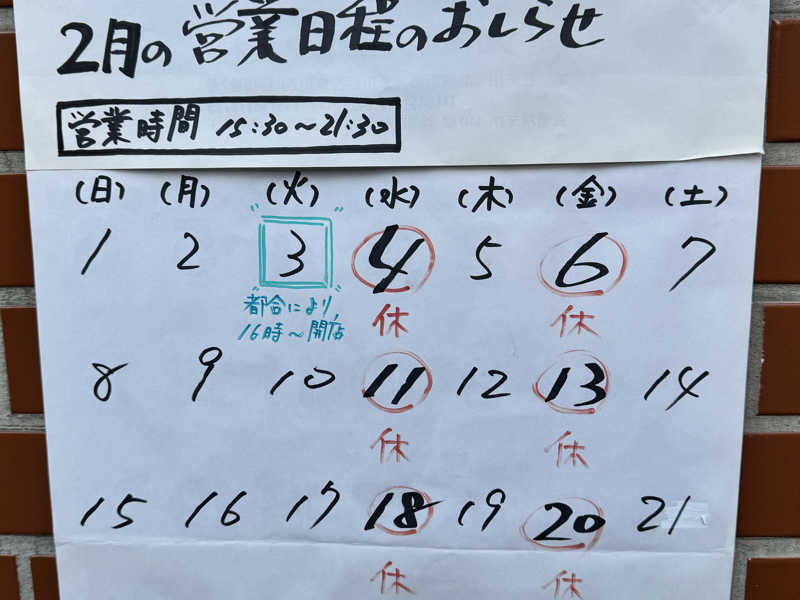 2月の営業日程のおしらせ
営業時間 15:30～21:30
(日) (月) (火) (水) (木) (金) (土)
1 2 3 4 5 6 7
都合により、 休 休
16時～開店
8 9 10 11 12 13 14
休 休
15 16 17 18 19 20 21
休 休